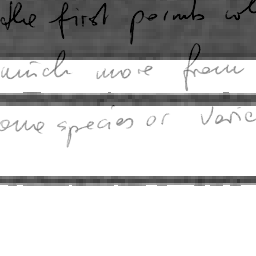 the first points wh
much more from
ame species or Varie